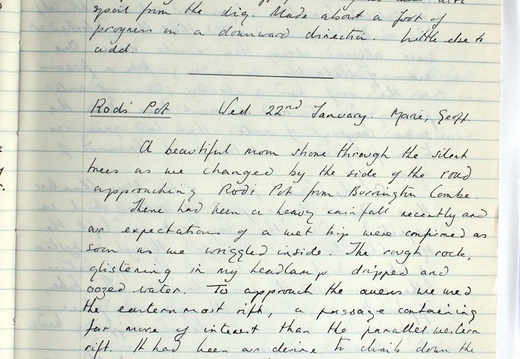 spoil from the dig. Made about a foot of
progress in a downward direction. Little else to
add.
Rods Pot Wed. 22nd January Marie, Geoff
A beautiful moon shone through the silent
trees as we changed by the side of the road
approaching Rods Pot from Burrington Combe.
There had been a heavy rainfall recently and
our expectations of a wet trip were confirmed as
soon as we wriggled inside. The rough rock,
glistening in my headlamp dripped and
oozed water. To approach the avens we used
the easternmost rift, a passage containing
far more of interest than the parallel western
rift. It had been our desire to climb down the